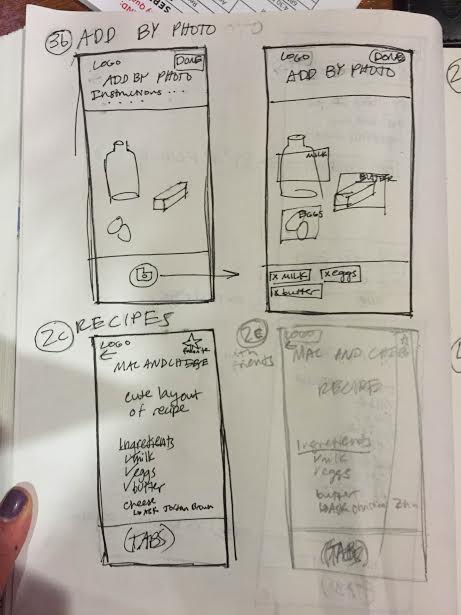 3b ADD BY PHOTO
LOGO DONE
ADD BY PHOTO
Instructions...
LOGO DONE
ADD BY PHOTO
MILK
BUTTER
EGGS
x MILK x eggs
x butter
2c RECIPES
LOGO
favorite
MAC AND CHEESE
cute layout
of recipe
Ingredients
milk
eggs
butter
cheese
ASK Jordan Brown
(TABS)
LOGO
MAC AND CHEESE
RECIPE
Ingredients
milk
eggs
butter
ASK
(TABS)